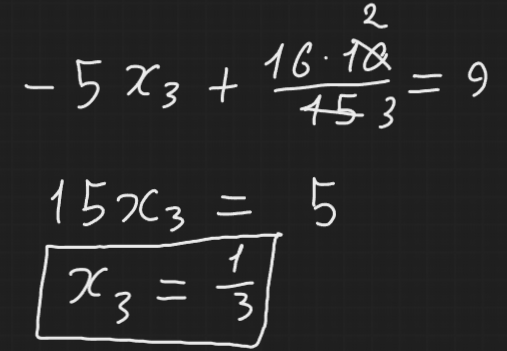 - 5 x₃ + (16 · 1̶0̶ 2) / (1̶5̶ 3) = 9
15x₃ = 5
x₃ = 1/3